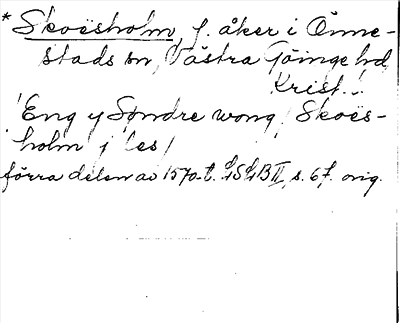 * Skoësholm, f. åker i Önne-
stads sn, Västra Göinge hd,
Krist. l.
'Eng y Søndre wong, Skoës-
holm j les /
förra delen av 1570-t. s. 67. orig.